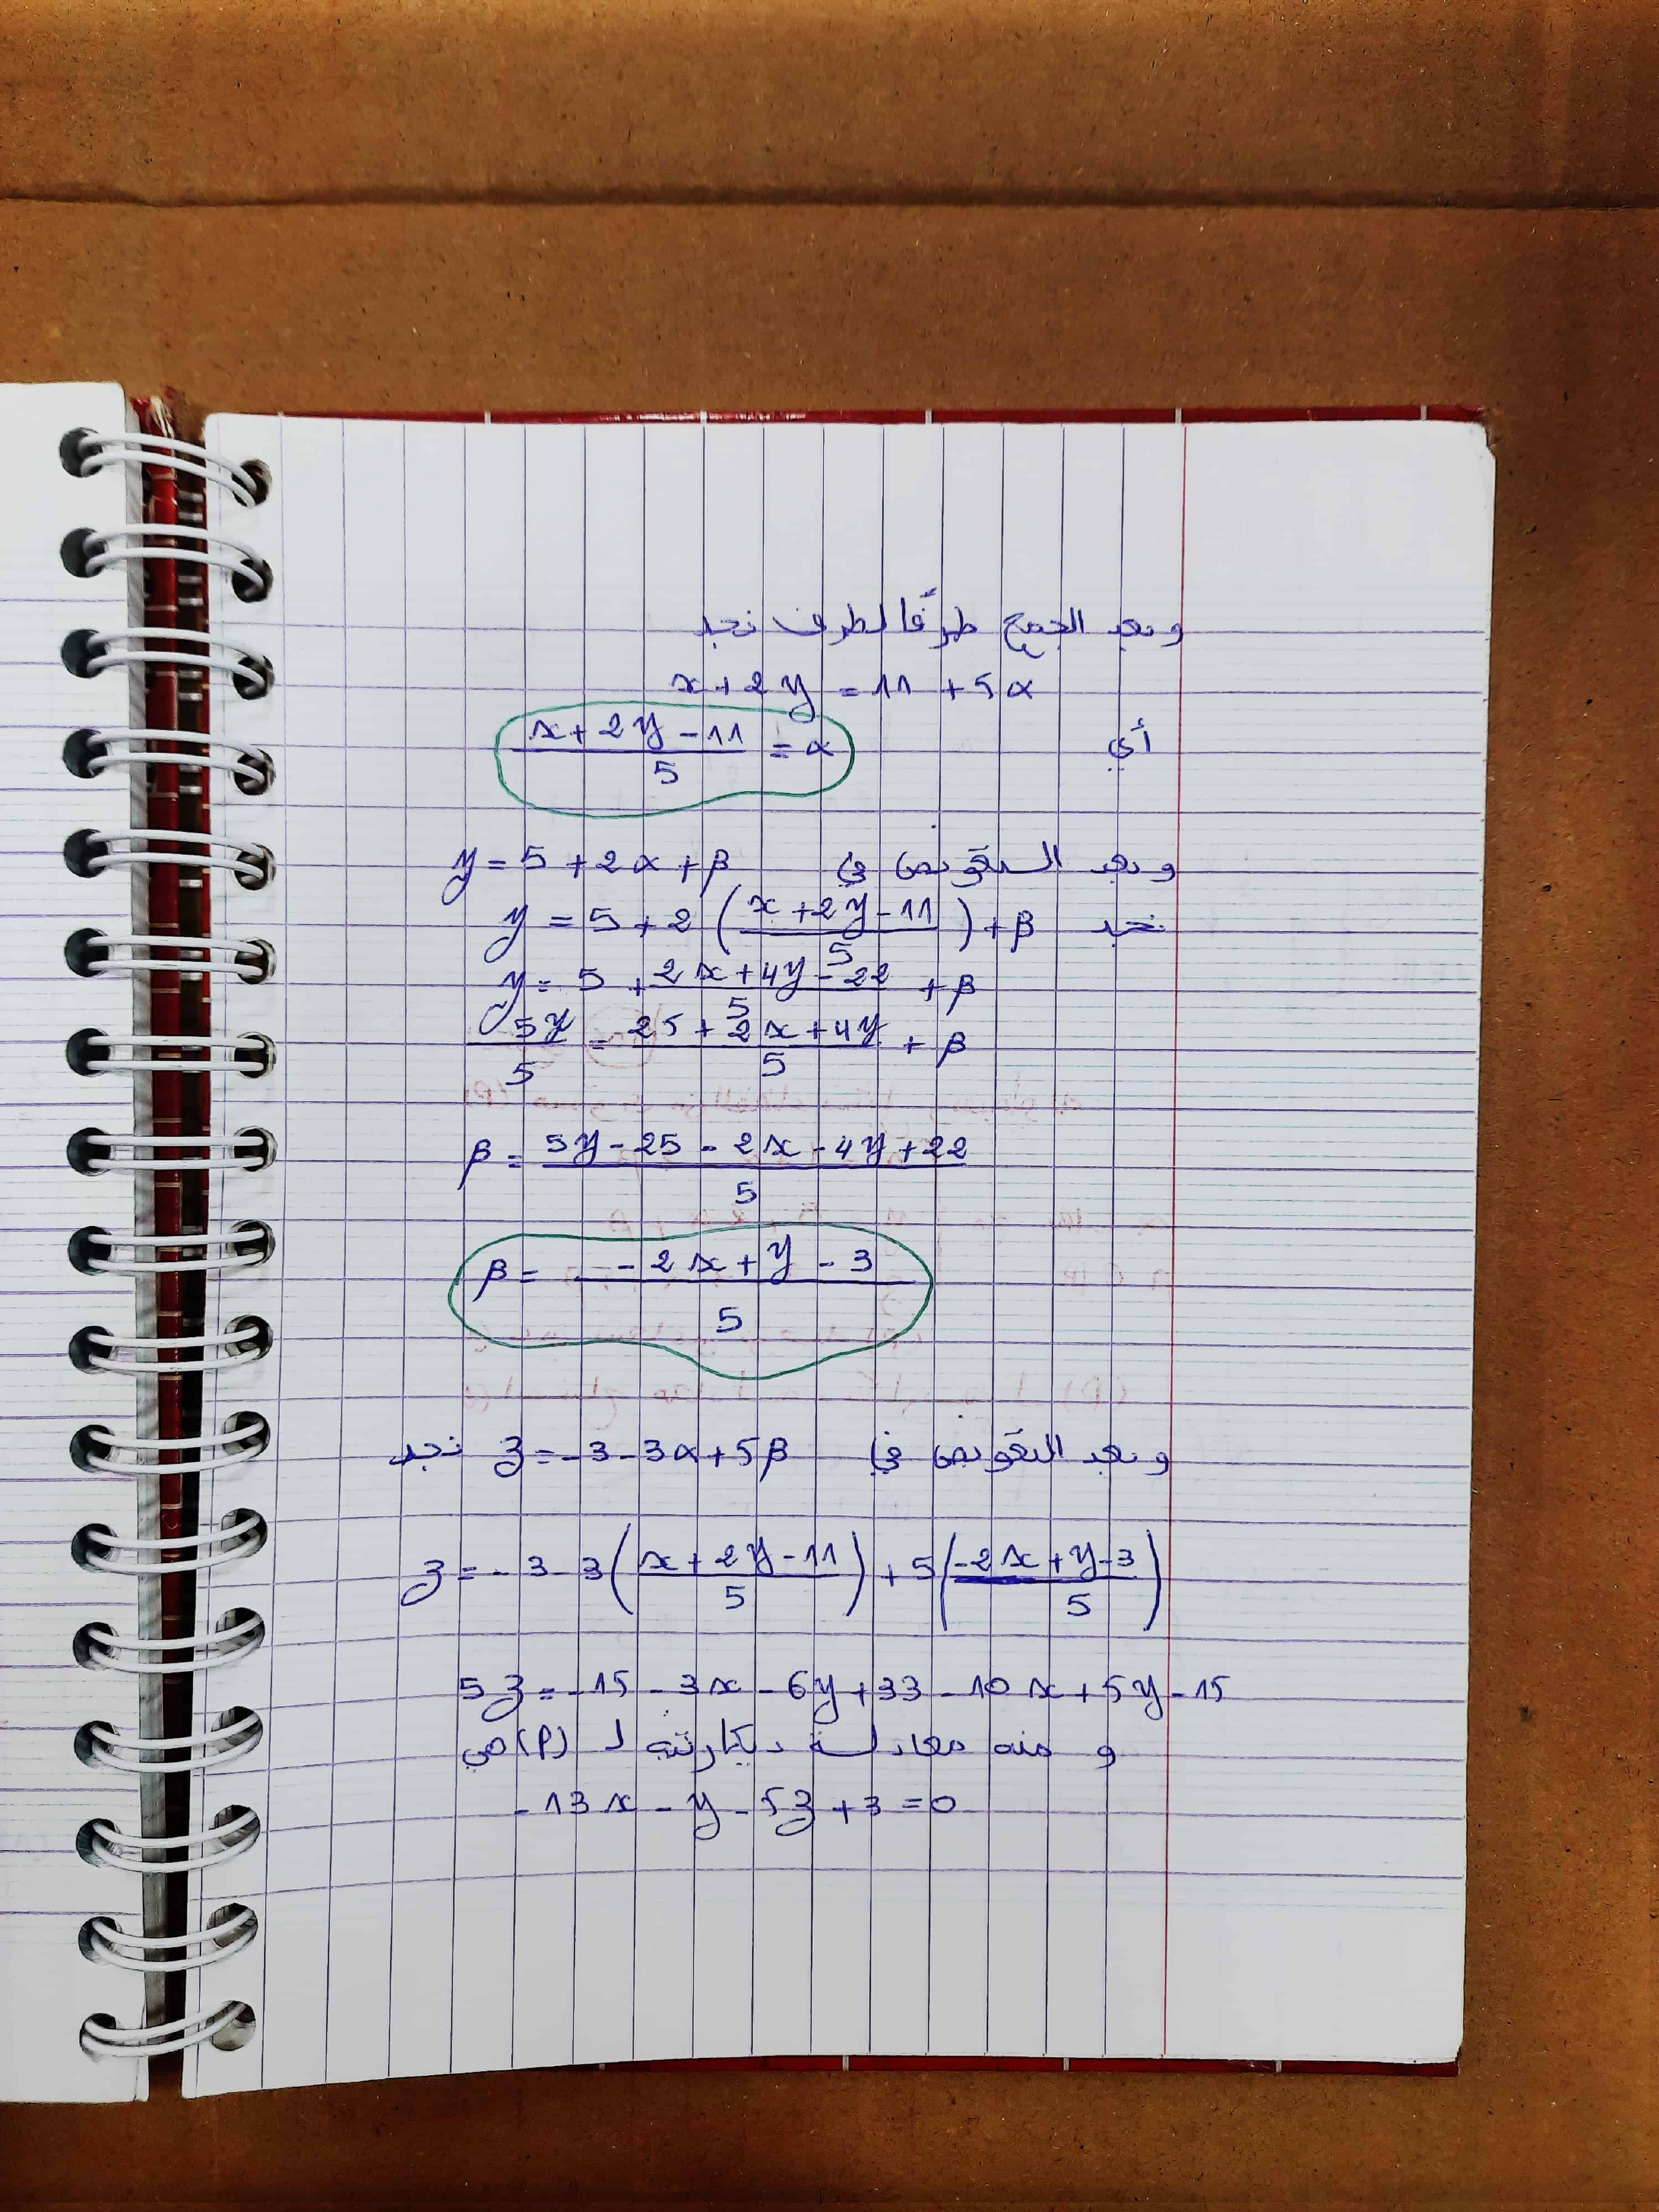 وبعد الجمع طرفًا لطرف نجد
x + 2y = 11 + 5α
أي (x + 2y - 11)/5 = α
وبعد التعويض في y = 5 + 2α + β
نجد y = 5 + 2((x + 2y - 11)/5) + β
y = 5 + (2x + 4y - 22)/5 + β
5y/5 = (25 + 2x + 4y)/5 + β
β = (5y - 25 - 2x - 4y + 22)/5
β = (-2x + y - 3)/5
وبعد التعويض في z = -3 - 3α + 5β نجد
z = -3 - 3((x + 2y - 11)/5) + 5((-2x + y - 3)/5)
5z = -15 - 3x - 6y + 33 - 10x + 5y - 15
و منه معادلة ديكارتية لـ (P) هي
-13x - y - 5z + 3 = 0